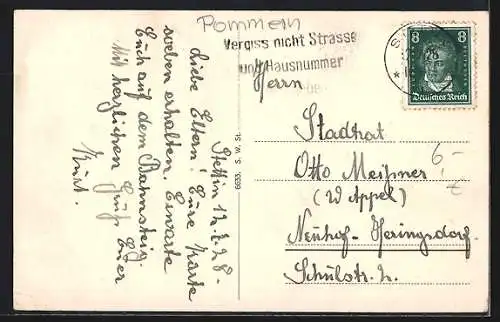 Pommern
Vergiss nicht Strasse
und Hausnummer
8 8
Deutsches Reich
Stettin 12.2.28.
Liebe Eltern! Eure Karte
soeben erhalten. Erwarte
Euch auf dem Bahnsteig.
Mit herzlichem Gruß Euer
Kurt.
Herrn
Stadtrat
Otto Meißner
(W Appel)
Neuhof-Heringsdorf
Schulstr. 2.
6,-
€